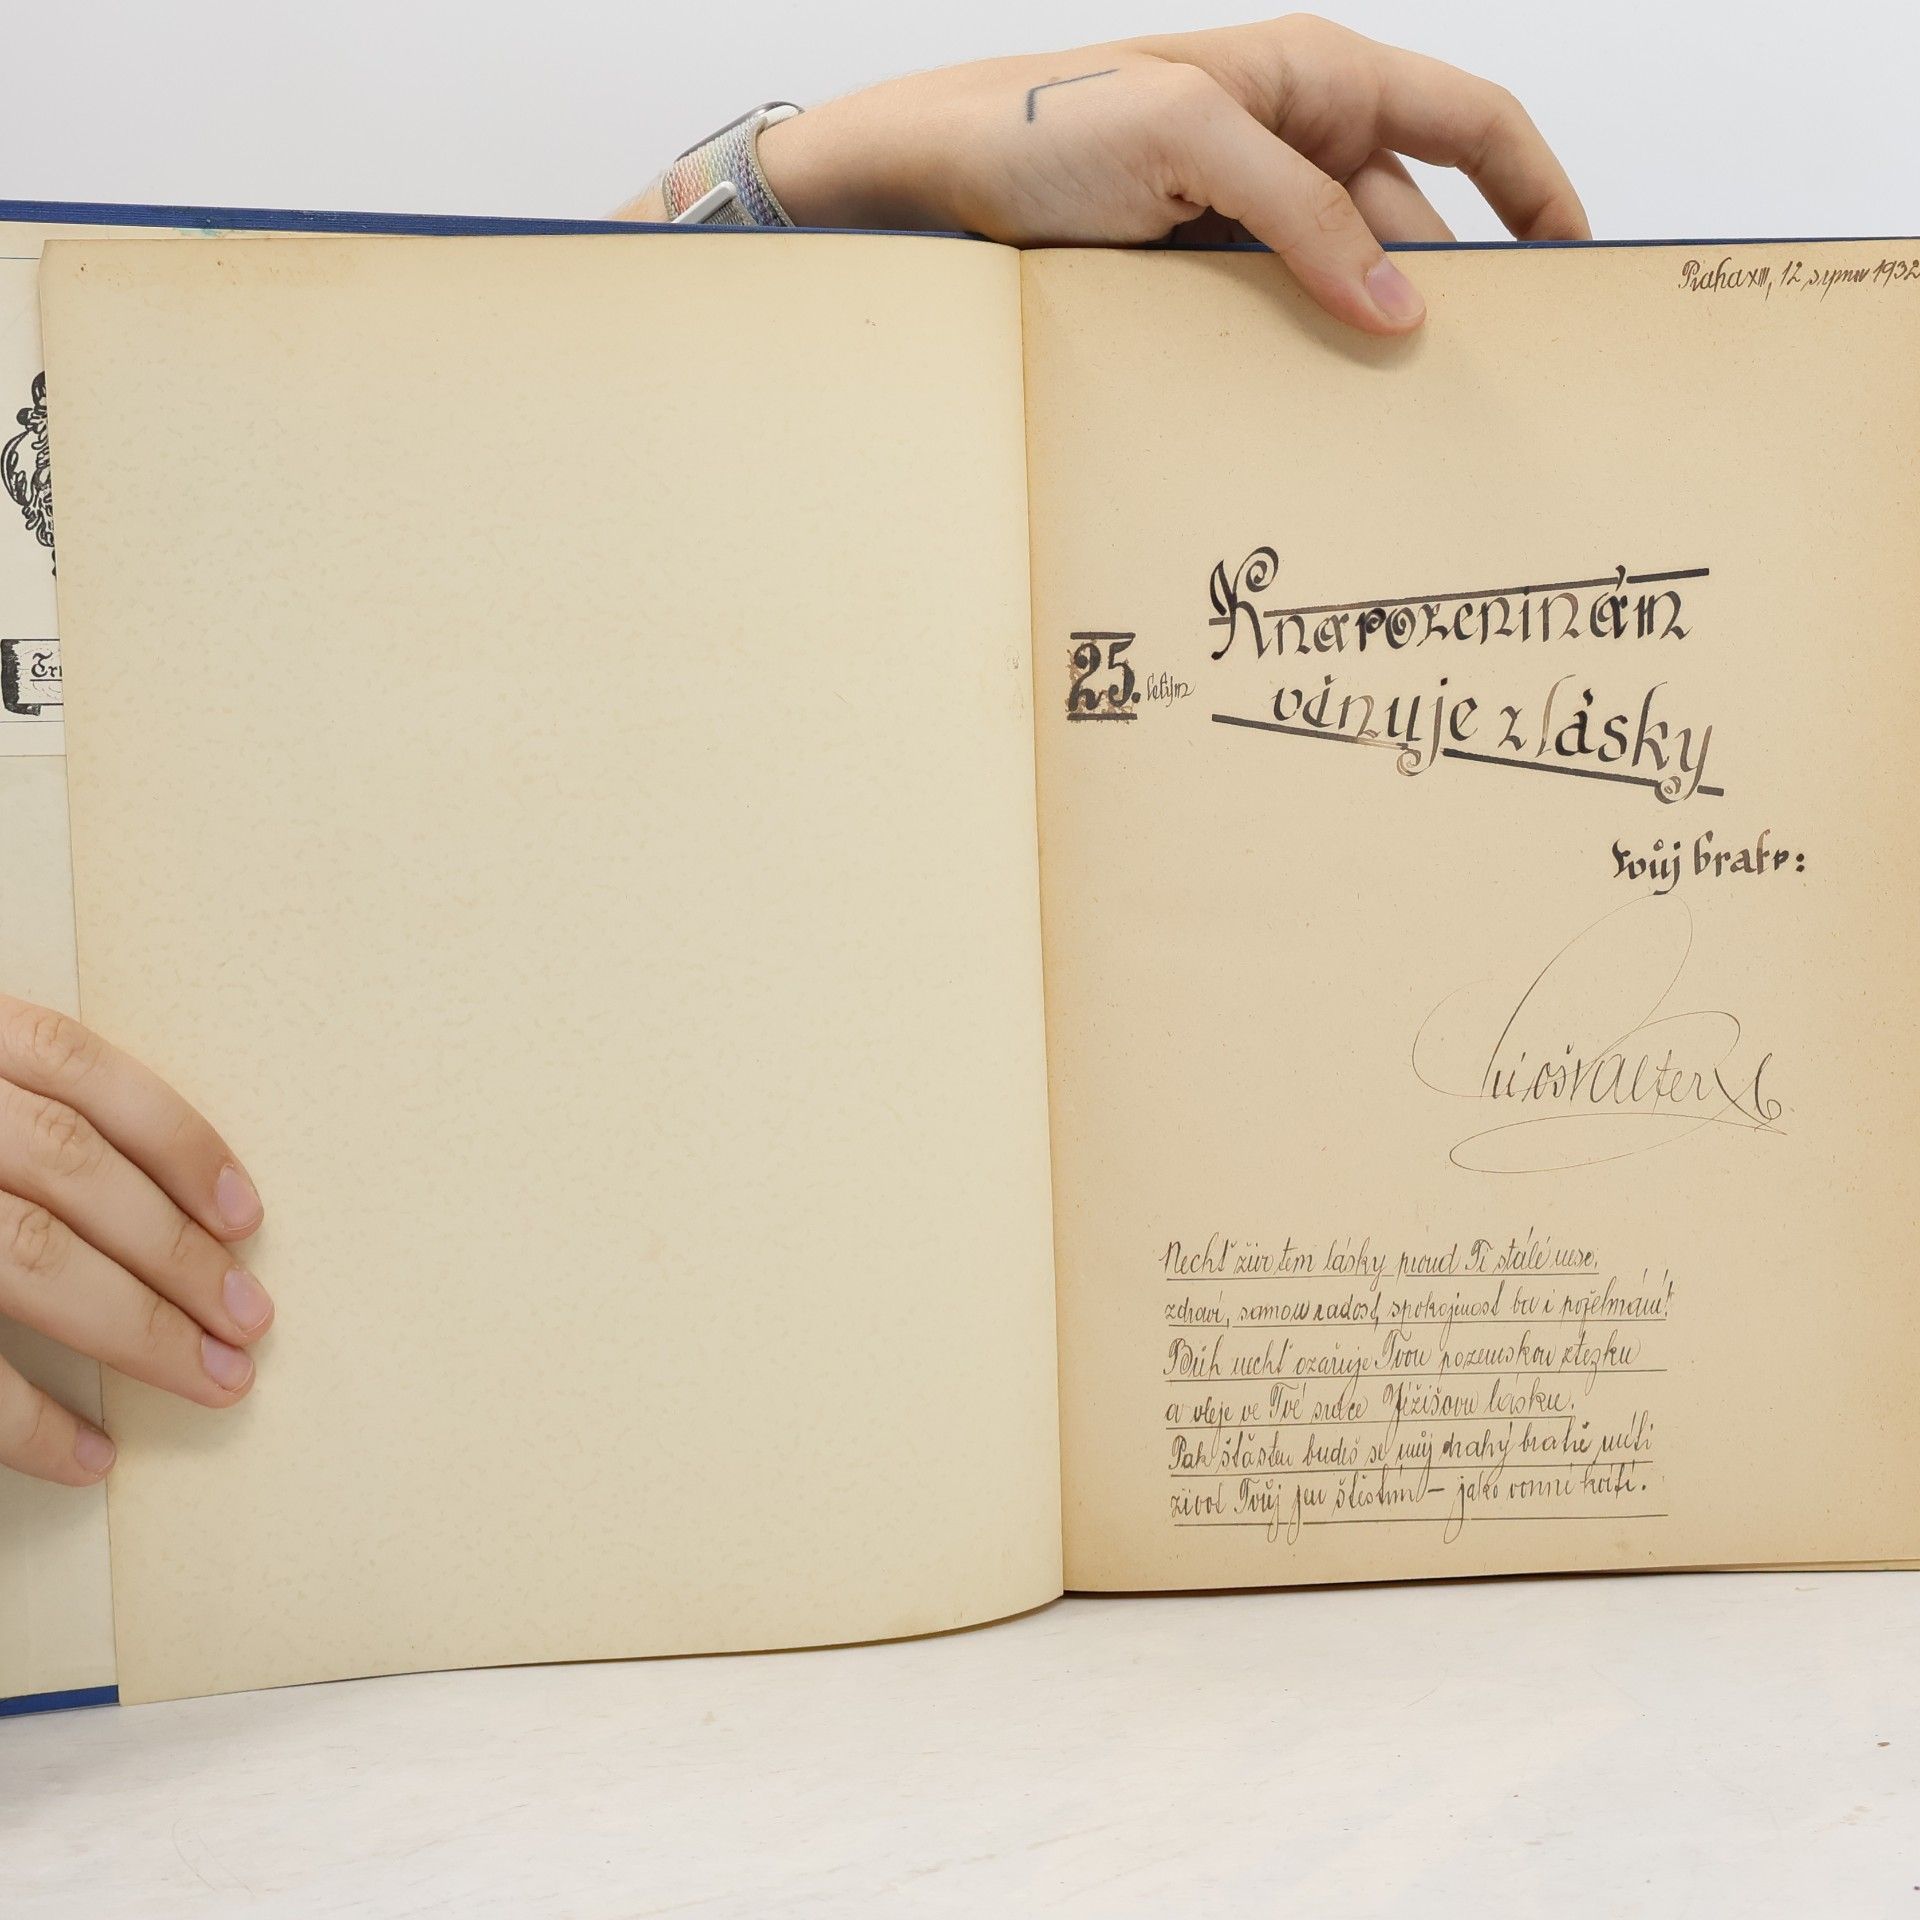 Tr
Praha XIII, 12 srpna 1932
K narozeninám
25. letým
věnuje z lásky
tvůj bratr:
Valter
Nechť životem lásky proud Ti stálé nese,
zdraví, samou radost, spokojenost ba i požehnání!
Bůh nechť ozařuje Tvou pozemskou stezku
a vleje ve Tvé srdce Ježíšovu lásku.
Pak šťasten budeš se můj drahý bratře míti
život Tvůj jen štěstím – jako vonné kvítí.